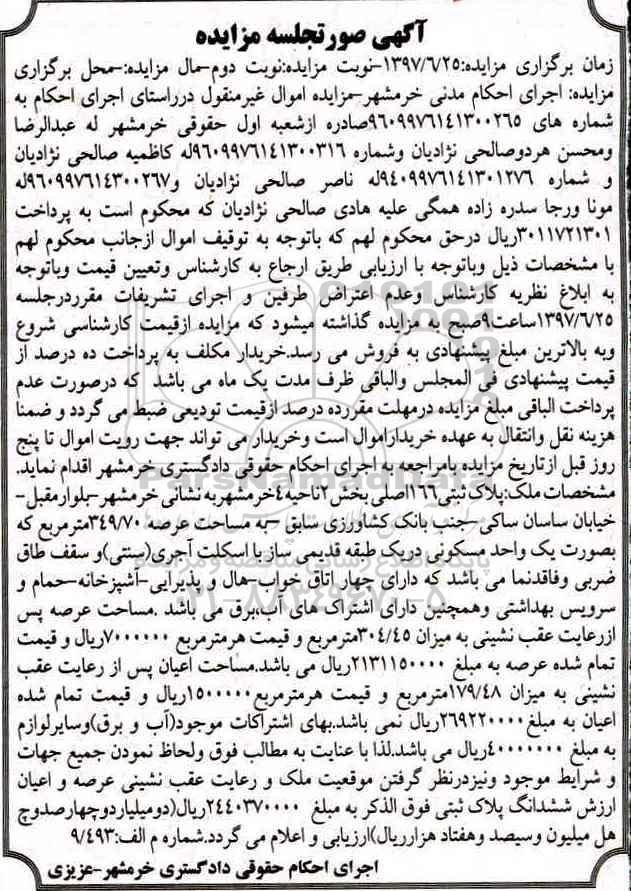 آگهی صورتجلسه مزایده
زمان برگزاری مزایده:۱۳۹۷/۶/۲۵-نوبت مزایده:نوبت دوم-مال مزایده:-محل برگزاری
مزایده: اجرای احکام مدنی خرمشهر-مزایده اموال غیرمنقول درراستای اجرای احکام به
شماره های ۹۶۰۹۹۷۶۱۴۱۳۰۰۲۶۵صادره ازشعبه اول حقوقی خرمشهر له عبدالرضا
ومحسن هردوصالحی نژادیان وشماره ۹۶۰۹۹۷۶۱۴۱۳۰۰۳۱۶له کاظمیه صالحی نژادیان
و شماره ۹۴۰۹۹۷۶۱۴۱۳۰۱۲۷۶له ناصر صالحی نژادیان و۹۶۰۹۹۷۶۱۴۳۰۰۲۶۷له
مونا ورجا سدره زاده همگی علیه هادی صالحی نژادیان که محکوم است به پرداخت
۳۰۱۱۷۲۱۳۰۱ریال درحق محکوم لهم که باتوجه به توقیف اموال ازجانب محکوم لهم
با مشخصات ذیل وباتوجه با ارزیابی طریق ارجاع به کارشناس وتعیین قیمت وباتوجه
به ابلاغ نظریه کارشناس وعدم اعتراض طرفین و اجرای تشریفات مقرردرجلسه
۱۳۹۷/۶/۲۵ساعت۹صبح به مزایده گذاشته میشود که مزایده ازقیمت کارشناسی شروع
وبه بالاترین مبلغ پیشنهادی به فروش می رسد.خریدار مکلف به پرداخت ده درصد از
قیمت پیشنهادی فی المجلس والباقی ظرف مدت یک ماه می باشد که درصورت عدم
پرداخت الباقی مبلغ مزایده درمهلت مقررده درصد ازقیمت تودیعی ضبط می گردد و ضمنا
هزینه نقل وانتقال به عهده خریداراموال است وخریدار می تواند جهت رویت اموال تا پنج
روز قبل ازتاریخ مزایده بامراجعه به اجرای احکام حقوقی دادگستری خرمشهر اقدام نماید.
مشخصات ملک:پلاک ثبتی۱۶۶اصلی بخش۲ناحیه۴خرمشهربه نشانی خرمشهر-بلوارمقبل-
خیابان ساسان ساکی-جنب بانک کشاورزی سابق -به مساحت عرصه ۳۴۹/۷۰مترمربع که
بصورت یک واحد مسکونی دریک طبقه قدیمی ساز با اسکلت آجری(سنتی)و سقف طاق
ضربی وفاقدنما می باشد که دارای چهار اتاق خواب-هال و پذیرایی-آشپزخانه-حمام و
سرویس بهداشتی وهمچنین دارای اشتراک های آب،برق می باشد .مساحت عرصه پس
ازرعایت عقب نشینی به میزان ۳۰۴/۴۵مترمربع و قیمت هرمترمربع ۷۰۰۰۰۰۰ریال و قیمت
تمام شده عرصه به مبلغ ۲۱۳۱۱۵۰۰۰۰ریال می باشد.مساحت اعیان پس از رعایت عقب
نشینی به میزان ۱۷۹/۴۸مترمربع و قیمت هرمترمربع۱۵۰۰۰۰۰ریال و قیمت تمام شده
اعیان به مبلغ۲۶۹۲۲۰۰۰۰ریال نمی باشد.بهای اشتراکات موجود(آب و برق)وسایرلوازم
به مبلغ ۴۰۰۰۰۰۰۰ریال می باشد.لذا با عنایت به مطالب فوق ولحاظ نمودن جمیع جهات
و شرایط موجود ونیزدرنظر گرفتن موقعیت ملک و رعایت عقب نشینی عرصه و اعیان
ارزش ششدانگ پلاک ثبتی فوق الذکر به مبلغ ۲۴۴۰۳۷۰۰۰۰ریال(دومیلیاردوچهارصدوچ
هل میلیون وسیصد وهفتاد هزارریال)ارزیابی و اعلام می گردد.شماره م الف:۹/۴۹۳
اجرای احکام حقوقی دادگستری خرمشهر-عزیزی
ParsNamadData
۰۲۱-۸۸۳۴۹۶۷۰-۵